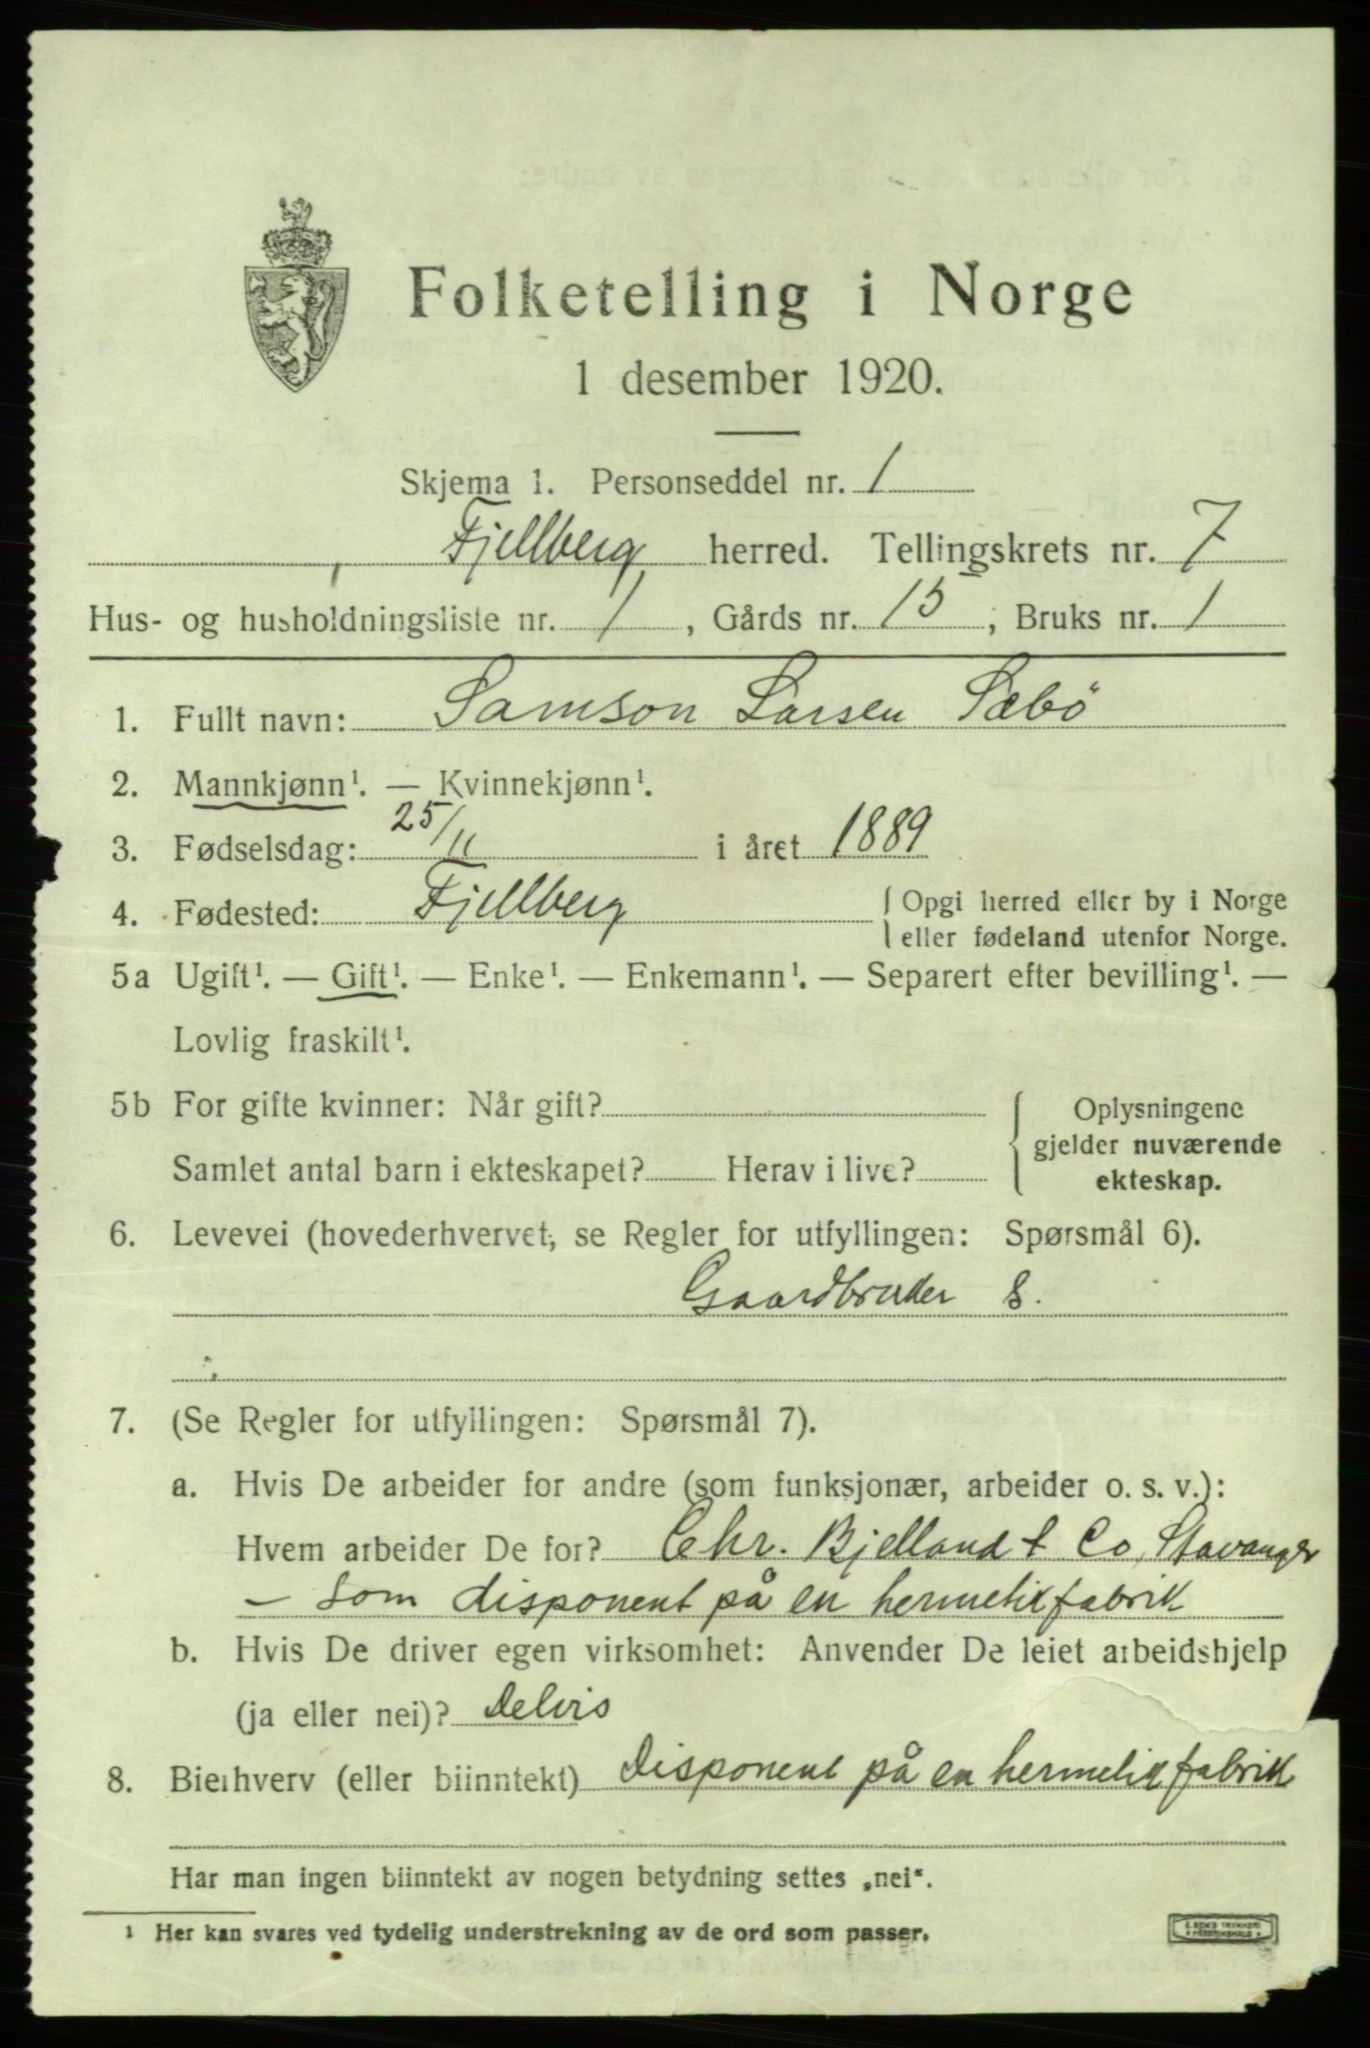 Folketelling i Norge
1 desember 1920.
Skjema 1. Personseddel nr. 1
Fjellberg herred. Tellingskrets nr. 7
Hus- og husholdningsliste nr. 1, Gårds nr. 15; Bruks nr. 1
1. Fullt navn: Samson Larsen Sæbö
2. Mannkjønn¹. — Kvinnekjønn¹.
3. Fødselsdag: 25/11 i året 1889
4. Fødested: Fjellberg
Opgi herred eller by i Norge
eller fødeland utenfor Norge.
5a Ugift¹. — Gift¹. — Enke¹. — Enkemann¹. — Separert efter bevilling¹. —
Lovlig fraskilt¹.
5b For gifte kvinner: Når gift?
Samlet antal barn i ekteskapet? Herav i live?
Oplysningene
gjelder nuværende
ekteskap.
6. Levevei (hovederhvervet, se Regler for utfyllingen: Spørsmål 6).
Gaardbruker S.
7. (Se Regler for utfyllingen: Spørsmål 7).
a. Hvis De arbeider for andre (som funksjonær, arbeider o. s. v.):
Hvem arbeider De for? Chr. Bjelland & Co, Stavanger
– som disponent på en hermetikfabrik
b. Hvis De driver egen virksomhet: Anvender De leiet arbeidshjelp
(ja eller nei)? Delvis
8. Bierhverv (eller biinntekt) Disponent på en hermetikfabrik
Har man ingen biinntekt av nogen betydning settes „nei“.
¹ Her kan svares ved tydelig understrekning av de ord som passer.